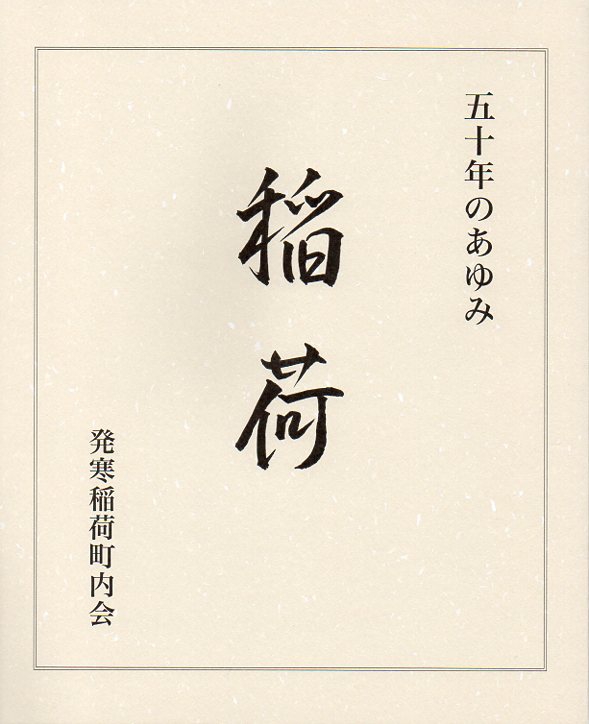 五十年のあゆみ
稲荷
発寒稲荷町内会